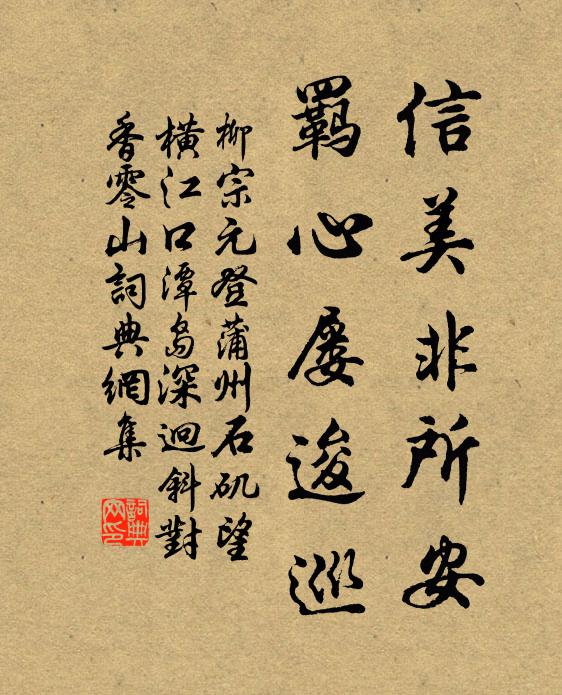 信美非所安
羈心屡逡巡
柳宗元登蒲州石矶望
橫江口潭島深迴斜對
香零山詞典網集
詞典
网印